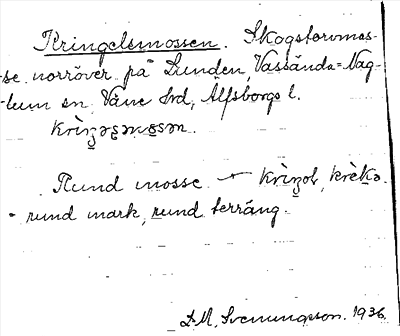 Kringelsmossen. Skogstorvmos-
se norröver på Lunden, Vassända-Nag-
lum sn, Väne hd, Älfsborgs l.
krìŋəsmɔsən.
Rund mosse - krìŋəl, krèkə.
- rund mark, rund terräng.
D. M. Svenungsson. 1936.